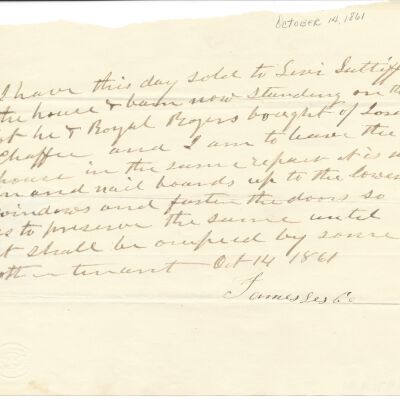 October 14, 1861
I have this day sold to Levi Sutliff
the house & barn now standing on the
lot he & Royal Rogers bought of
Chaffee and I am to leave the
house in the same repair it is
in and nail boards up to the lower
windows and fasten the doors so
as to preserve the same until
it shall be occupied by some
other tenant Oct 14 1861
James